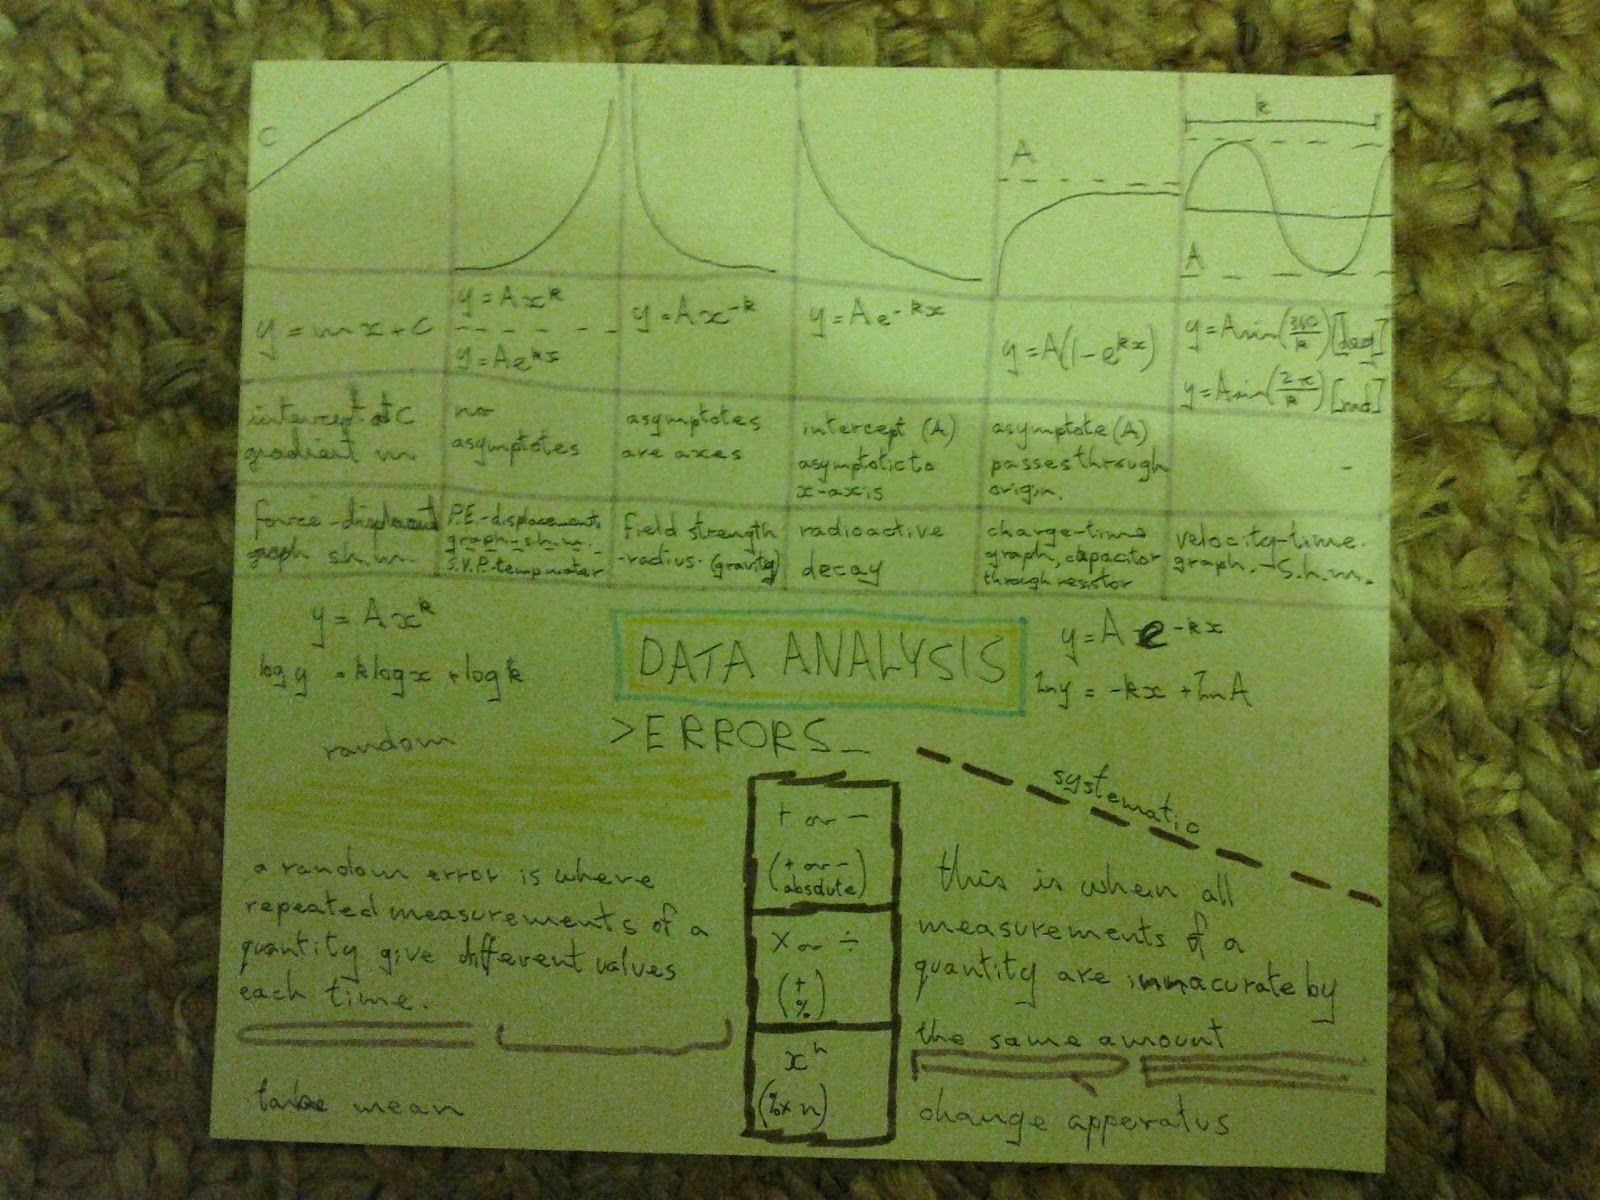 C
A
k
A
y = mx + c
y = Ax^k
y = Ae^kx
y = Ax^-k
y = Ae^-kx
y = A(1 - e^kx)
y = A sin(360/k) [deg]
y = A sin(2π/k) [rad]
intercept at C
gradient m
no
asymptotes
asymptotes
are axes
intercept (A)
asymptotic to
x-axis
asymptote (A)
passes through
origin.
-
force - displacement
graph s.h.m.
P.E. - displacement
graph - s.h.m.
S.V.P. - temp water
field strength
- radius. (gravity)
radioactive
decay
charge-time
graph, capacitor
through resistor
velocity-time.
graph. - S.h.m.
y = Ax^k
log y = k log x + log k
DATA ANALYSIS
y = A e^-kx
ln y = -kx + ln A
>ERRORS_
random
a random error is where
repeated measurements of a
quantity give different values
each time.
take mean
+ or -
(+ or -
absolute)
x or ÷
(+
%)
x^n
(% x n)
systematic
this is when all
measurements of a
quantity are innacurate by
the same amount
change apperatus